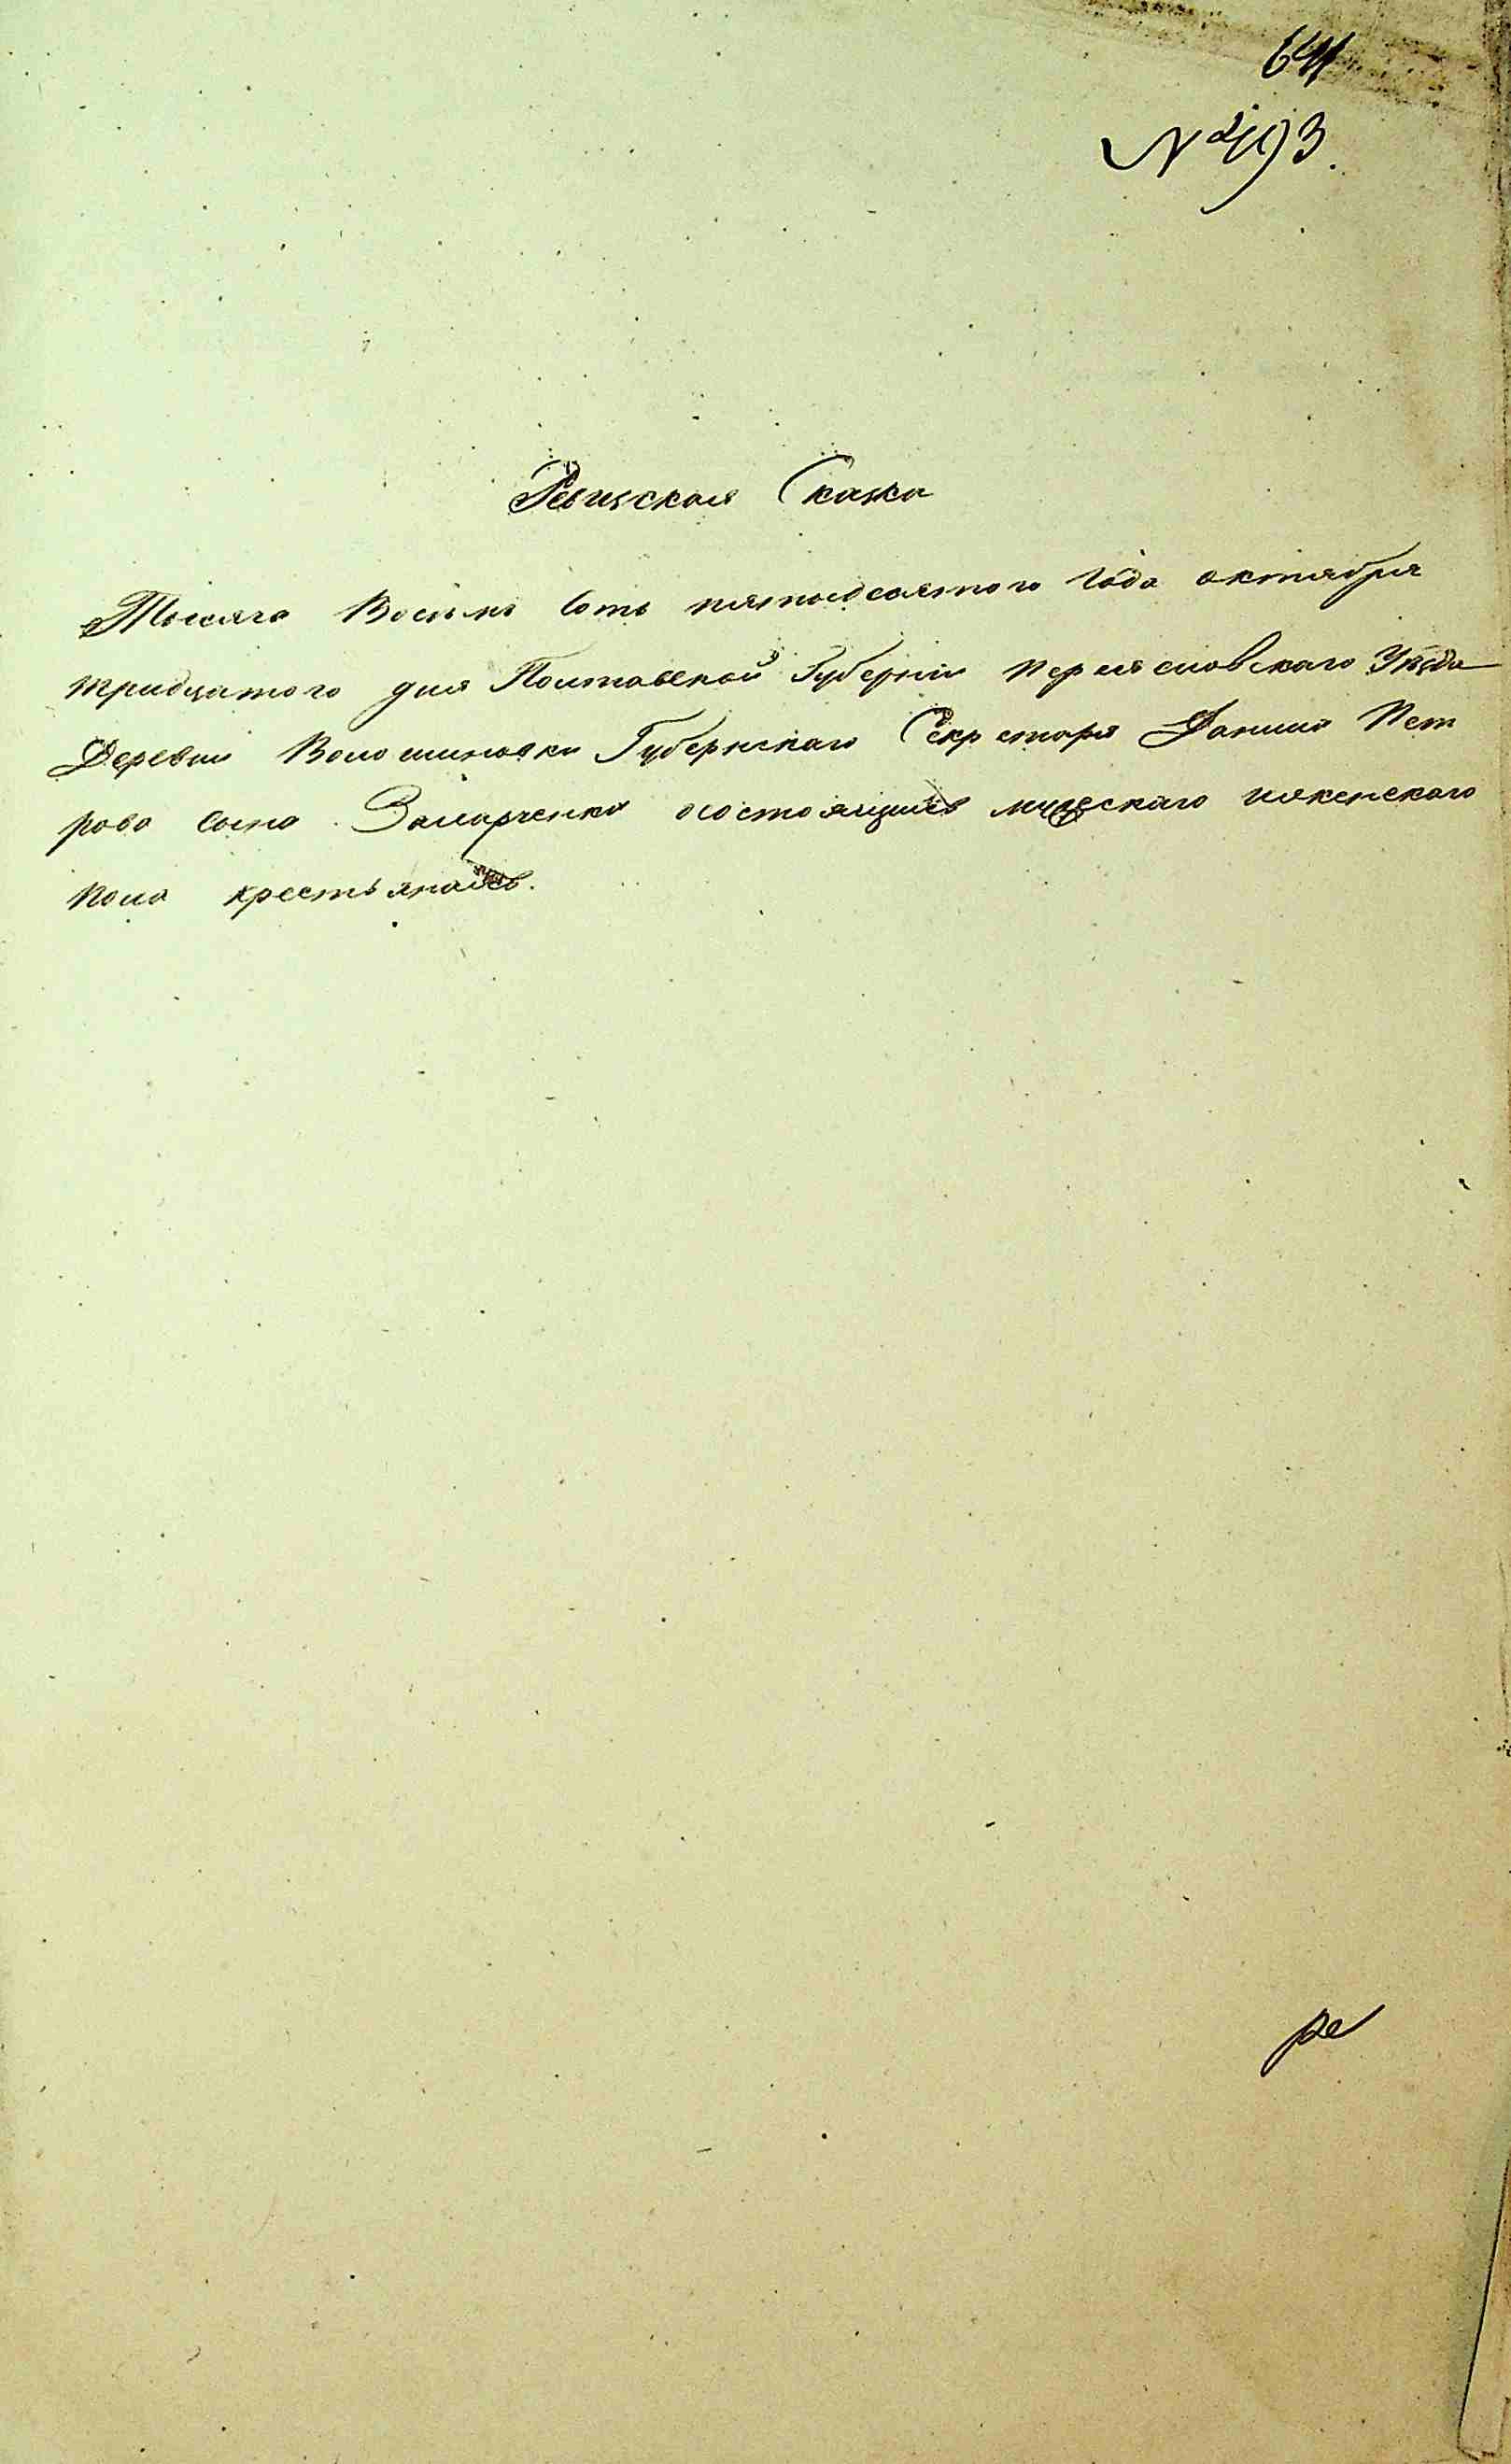 641
№ 493.
Ревизская Сказка
Тысяча Восемь сотъ пятьдесятого Года октября
тридцатого дня Полтавской Губерніи Переясловскаго Уѣзда
Деревни Волошиновки Губернскаго Секретаря Данила Пет
рова сына Замарченка осостоящихъ мужескаго иженскаго
пола крестьянахъ.
ре